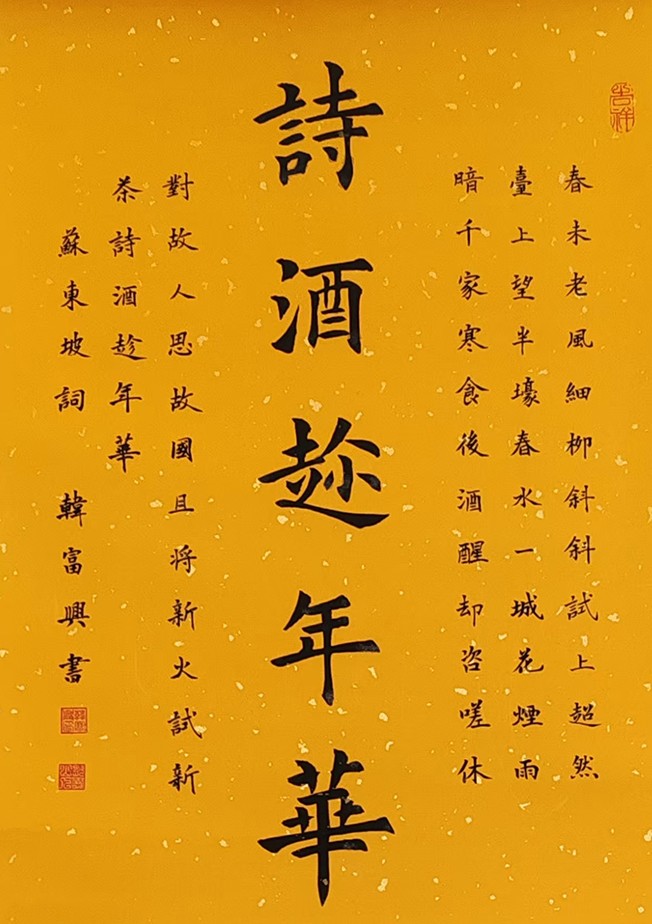 吉祥
春未老風細柳斜斜試上超然
臺上望半壕春水一城花煙雨
暗千家寒食後酒醒却咨嗟休
詩酒趂年華
對故人思故國且將新火試新
茶詩酒趁年華
蘇東坡詞 韓富興書